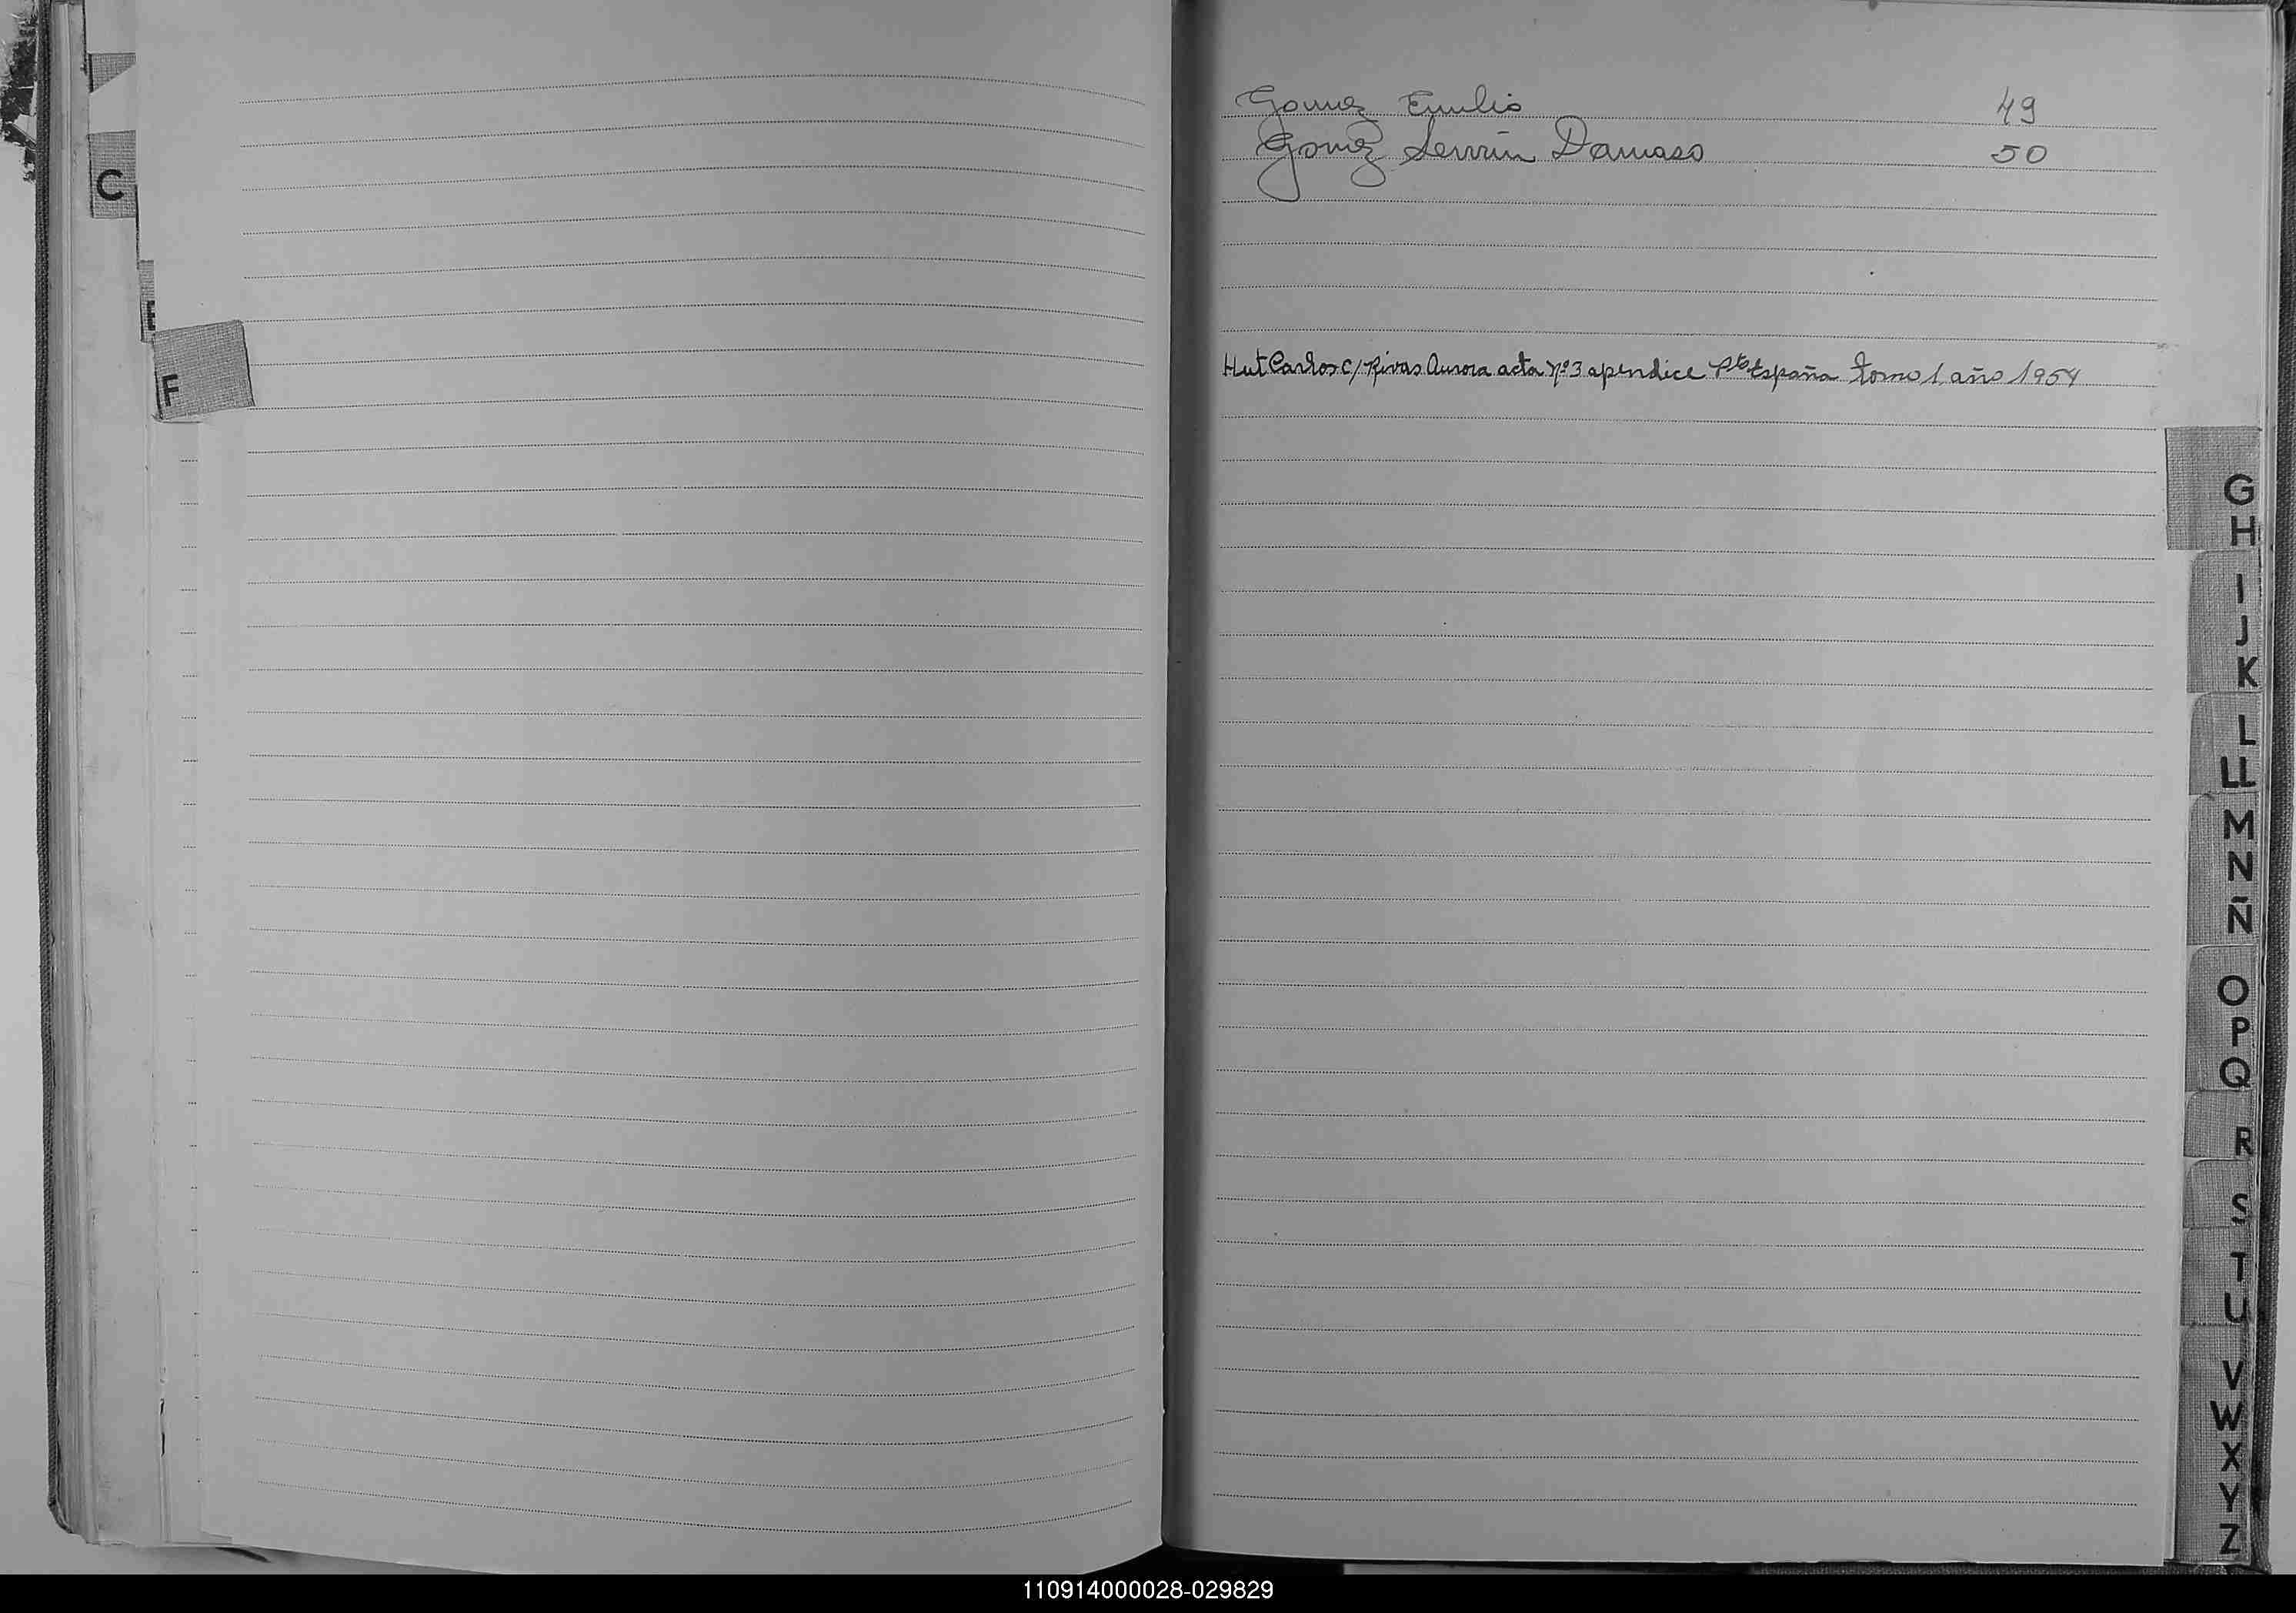 C
E
F
Gomez Emilio 49
Gomez Servin Damaso 50
Hut Carlos c/ Rivas Aurora acta nº 3 apendice Pto España tomo 1 año 1954
G
H
I
J
K
L
LL
M
N
Ñ
O
P
Q
R
S
T
U
V
W
X
Y
Z
110914000028-029829